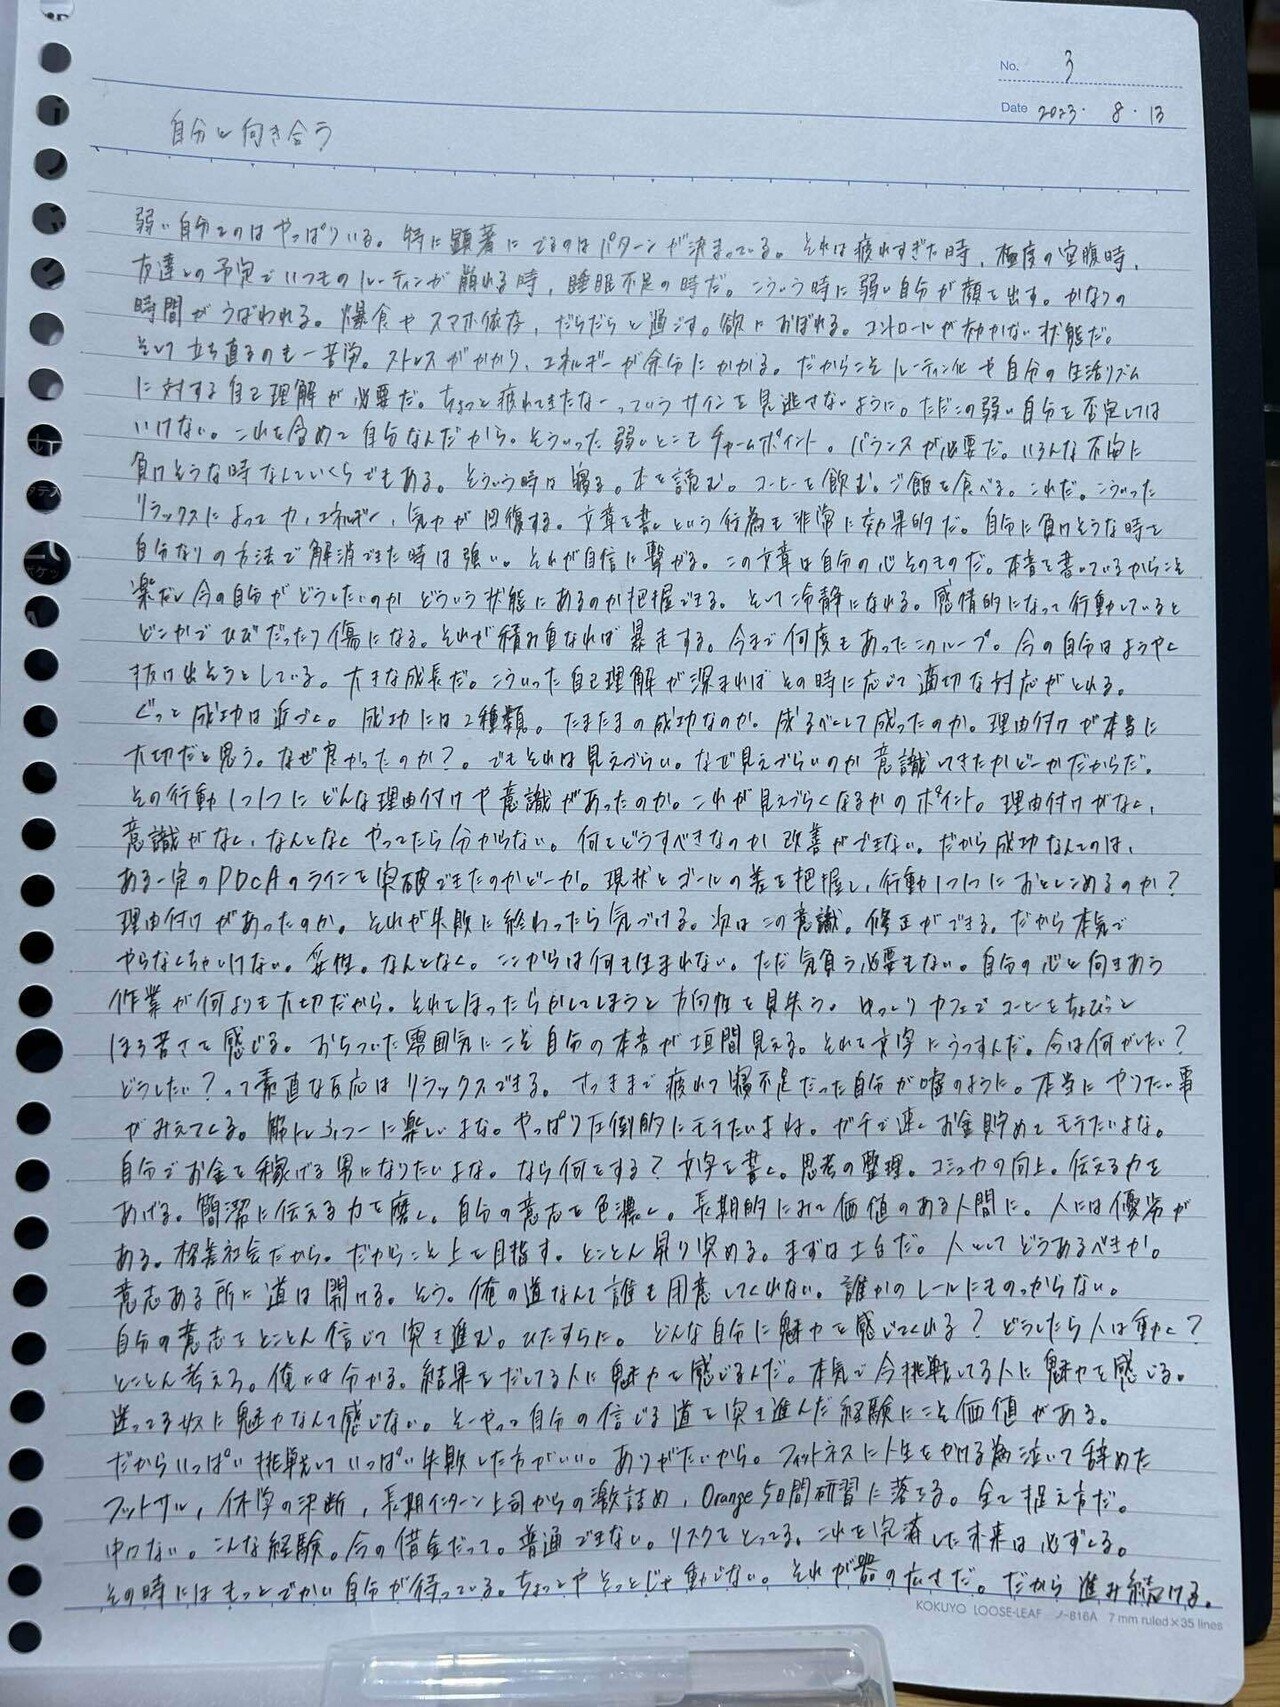 No. 3
Date 2023・8・13
自分と向き合う
弱い自分てのはやっぱりいる。特に顕著にでるのはパターンが決まっている。それは疲れすぎた時、極度の空腹時、
友達との予定でいつものルーティンが崩れる時、睡眠不足の時だ。こういう時に弱い自分が顔を出す。かなりの
時間がうばわれる。爆食やスマホ依存、だらだらと過ごす。欲におぼれる。コントロールが効かない状態だ。
そして立ち直るのも一苦労。ストレスがかかり、エネルギーが余分にかかる。だからこそルーティン化や自分の生活リズム
に対する自己理解が必要だ。ちょっと疲れてきたなーっていうサインを見逃さないように。ただこの弱い自分を否定しては
いけない。これを含めて自分なんだから。そういった弱いとこもチャームポイント。バランスが必要だ。いろんな不安に
負けそうな時なんていくらでもある。そういう時は寝る。本を読む。コーヒーを飲む。ご飯を食べる。これだ。こういった
リラックスによって力、エネルギー、気力が回復する。文章を書くという行為も非常に効果的だ。自分に負けそうな時を
自分なりの方法で解消できた時は強い。それが自信に繋がる。この文章は自分の心そのものだ。本音を書いているからこそ
楽だし今の自分がどうしたいのかどういう状態にあるのか把握できる。そして冷静になれる。感情的になって行動していると
どこかでひびだったり傷になる。それが積み重なれば暴走する。今まで何度もあったこのループ。今の自分はようやく
抜け出そうとしている。大きな成長だ。こういった自己理解が深まればその時に応じて適切な対応がとれる。
ぐっと成功は近づく。成功には2種類。たまたまの成功なのか。成るべくして成ったのか。理由付けが本当に
大切だと思う。なぜ良かったのか?。でもそれは見えづらい。なぜ見えづらいのか意識してきたかどーかだからだ。
その行動1つ1つにどんな理由付けや意識があったのか。これが見えづらくなるかのポイント。理由付けがなく、
意識がなく、なんとなくやってたら分からない。何をどうすべきなのか改善ができない。だから成功なんてのは、
ある一定のPDCAのラインを突破できたのかどーか。現状とゴールの差を把握し、行動1つ1つにおとしこめるのか?
理由付けがあったのか。それが失敗に終わったら気づける。次はこの意識。修正ができる。だから本気で
やらなくちゃいけない。妥性。なんとなく。ここからは何も生まれない。ただ気負う必要もない。自分の心と向きあう
作業が何よりも大切だから。それをほったらかしてしまうと方向性を見失う。ゆっくりカフェでコーヒーをちょびっと
ほろ苦さを感じる。おちついた雰囲気にこそ自分の本音が垣間見える。それを文字にうつすんだ。今は何がしたい?
どうしたい?って素直な反応はリラックスできる。さっきまで疲れて寝不足だった自分が嘘のように。本当にやりたい事
がみえてくる。筋トレふつーに楽しいよな。やっぱり圧倒的にモテたいよね。ガチで速くお金貯めてモテたいよな。
自分でお金を稼げる男になりたいよな。なら何をする?文字を書く。思考の整理。コミュ力の向上。伝える力を
あげる。簡潔に伝える力を磨く。自分の意志を色濃く。長期的にみて価値のある人間に。人には優劣が
ある。格差社会だから。だからこそ上を目指す。とことん突き詰める。まずは土台だ。人としてどうあるべきか。
意志ある所に道は開ける。そう。俺の道なんて誰も用意してくれない。誰かのレールにものっからない。
自分の意志をとことん信じて突き進む。ひたすらに。どんな自分に魅力を感じてくれる?どうしたら人は動く?
とことん考えろ。俺には分かる。結果をだしてる人に魅力を感じるんだ。本気で今挑戦してる人に魅力を感じる。
迷ってる奴に魅力なんて感じない。そーやって自分の信じる道を突き進んだ経験にこそ価値がある。
だからいっぱい挑戦していっぱい失敗した方がいい。ありがたいから。フィットネスに人生をかける為泣いて辞めた
フットサル、休学の決断、長期インターン上司からの激詰め、Orange 5日間研修に落ちる。全て捉え方だ。
中々ない。こんな経験。今の借金だって。普通できない。リスクをとってる。これを完済した未来は必ずくる。
その時にはもっとでかい自分が待っている。ちょっとやそっとじゃ動じない。それが器の広さだ。だから進み続ける。
KOKUYO LOOSE-LEAF ノ-816A 7mm ruled×35 lines